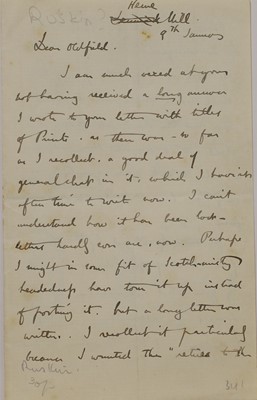 Ruskin
Herne
Hill.
9th January
Dear Oldfield.
I am much vexed at your
not having received a long answer
I wrote to your letter with titles
of Prints. as there was - so far
as I recollect. a good deal of
general chat in it. which I have not
often time to write now. I can't
understand how it has been lost -
letters hardly ever are. now. Perhaps
I might in some fit of Scotch-misty
headedness have torn it up instead
of posting it. but a long letter was
written. I recollect it particularly
because I wanted the "retired to the
Ruskin